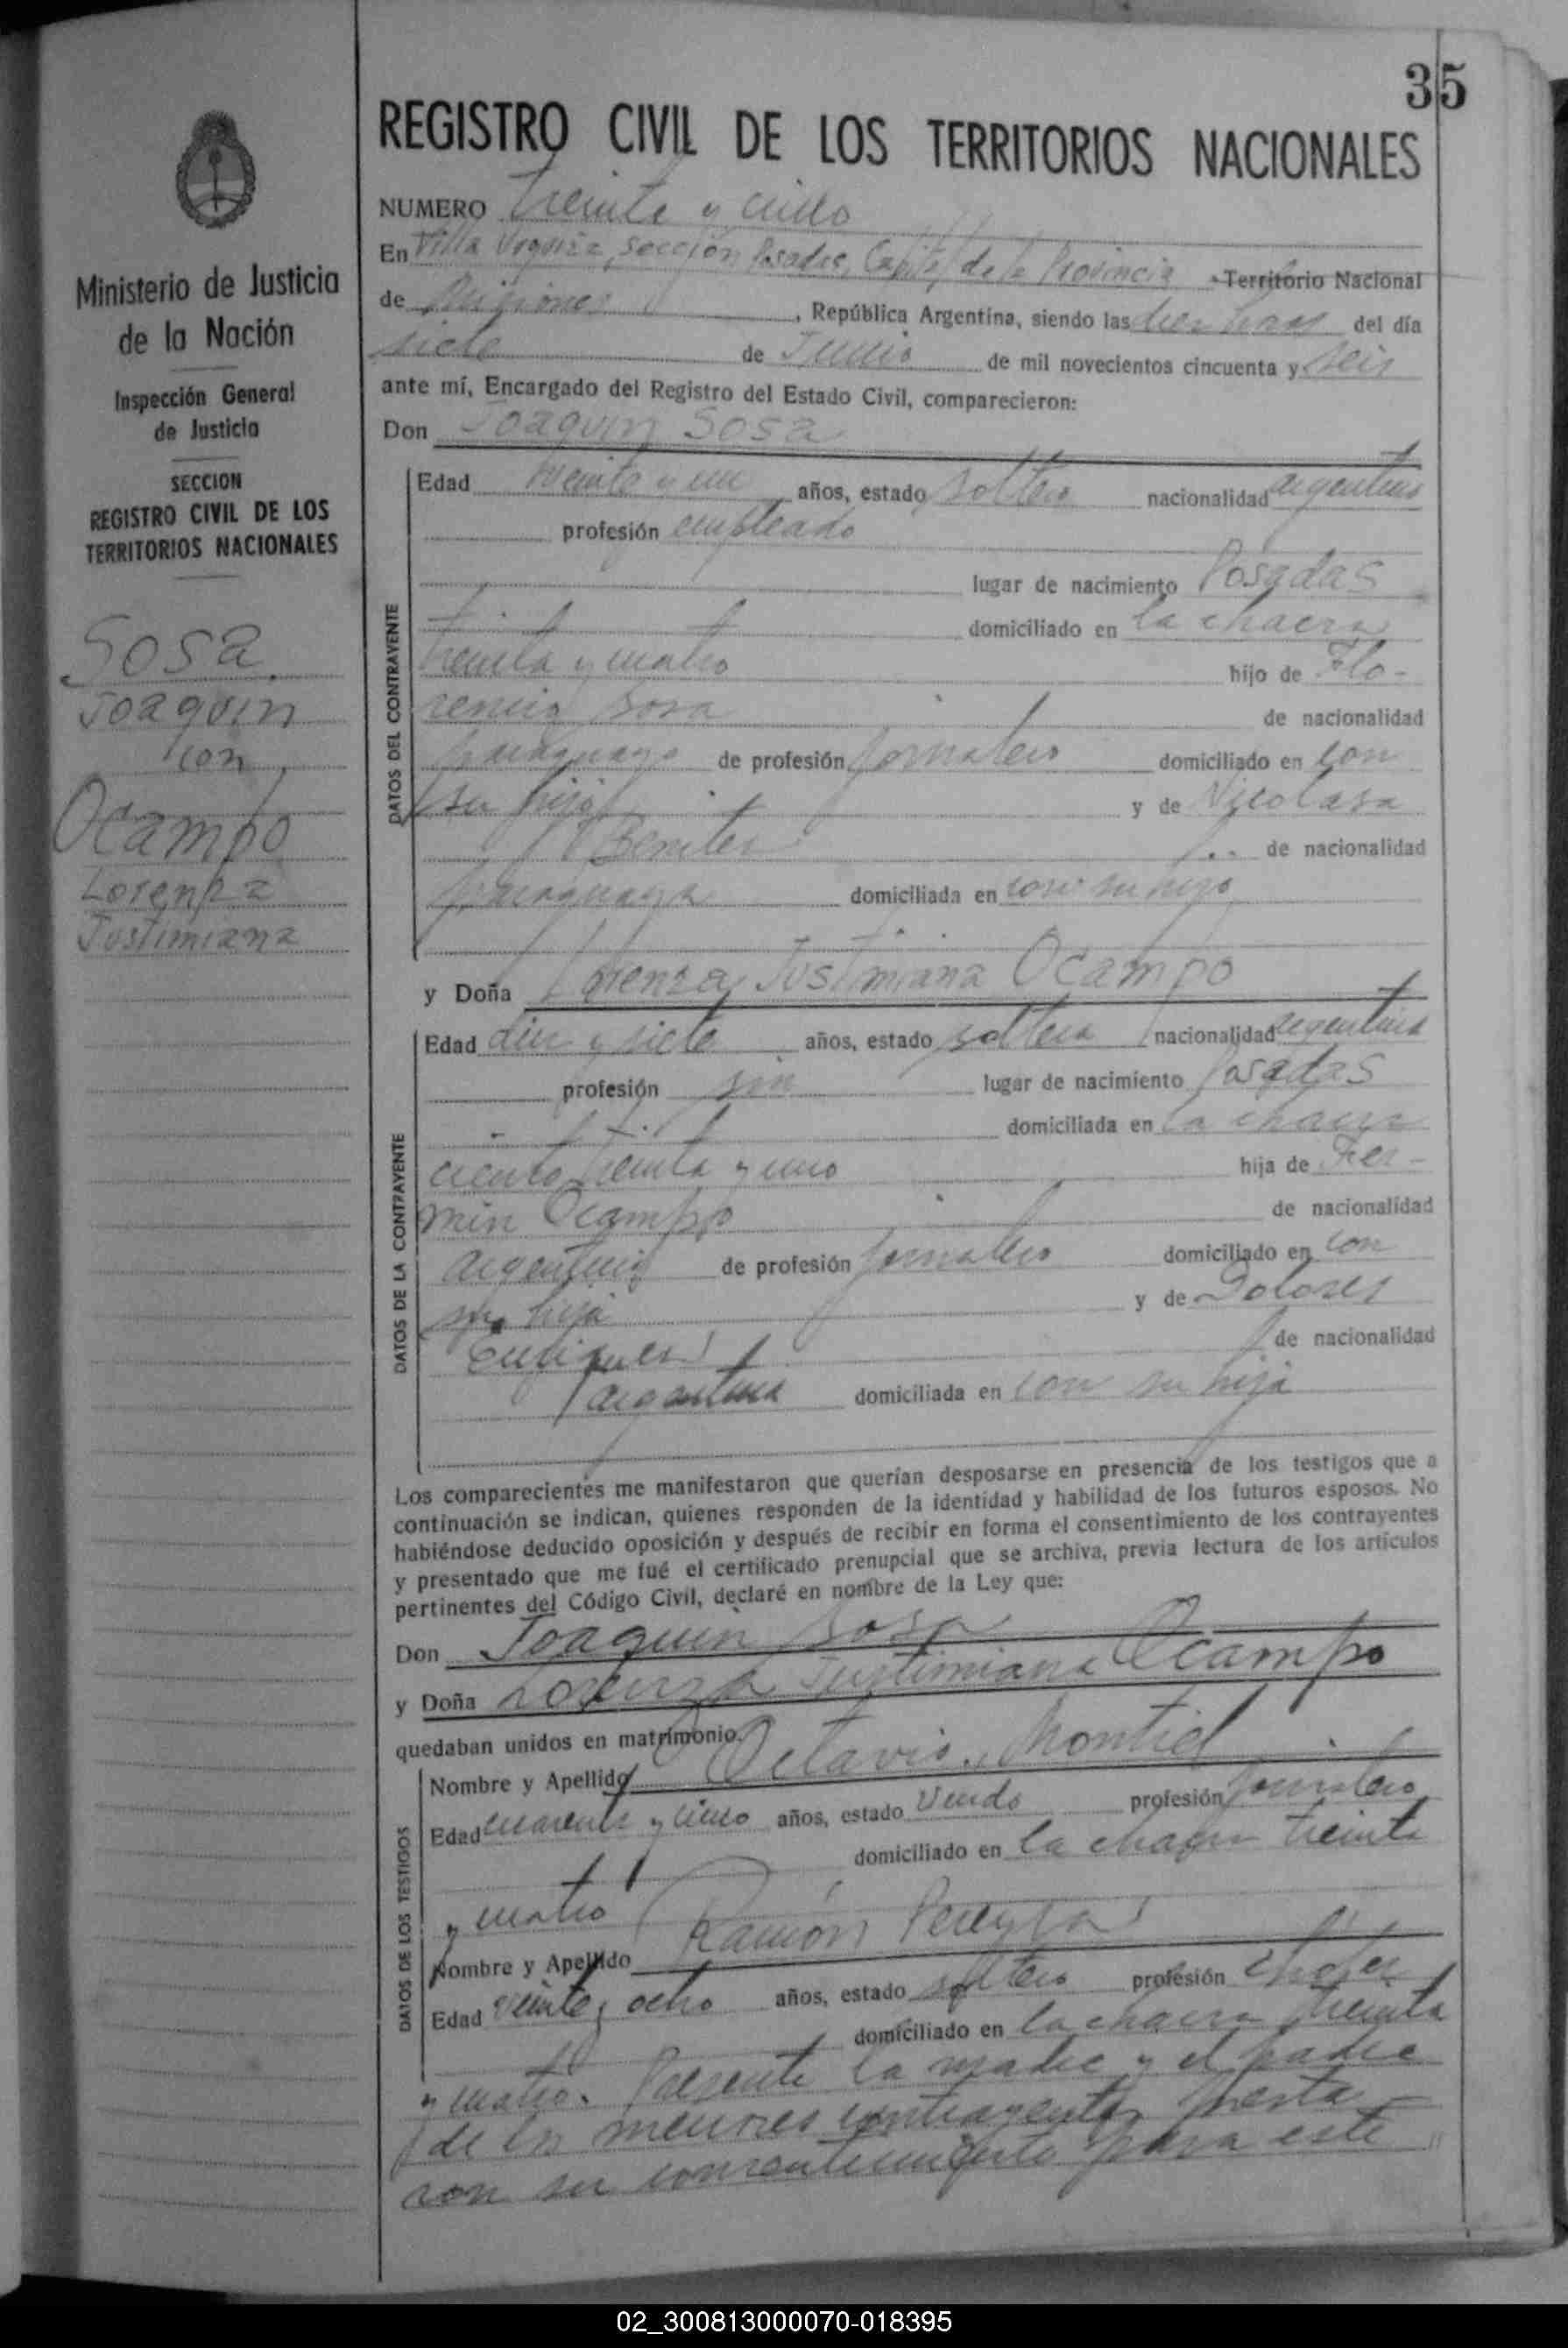 35
REGISTRO CIVIL DE LOS TERRITORIOS NACIONALES
Ministerio de Justicia
de la Nación
Inspección General
de Justicia
SECCION
REGISTRO CIVIL DE LOS
TERRITORIOS NACIONALES
Sosa
Joaquin
con
Ocampo
Lorenza
Justimiana
NUMERO treinta y cinco
En Villa Urquiza, Sección Posadas, Capital de la Provincia Territorio Nacional
de Misiones, República Argentina, siendo las diez horas del día
siete de Junio de mil novecientos cincuenta y seis
ante mí, Encargado del Registro del Estado Civil, comparecieron:
Don Joaquin Sosa
DATOS DEL CONTRAYENTE
Edad veinte y un años, estado soltero nacionalidad argentino
profesión empleado
lugar de nacimiento Posadas
domiciliado en la chacra
treinta y cuatro hijo de Flo-
rencio Sosa de nacionalidad
paraguayo de profesión jornalero domiciliado en con
su hijo y de Nicolasa
Benitez de nacionalidad
paraguaya domiciliada en con su hijo
y Doña Lorenza Justimiana Ocampo
DATOS DE LA CONTRAYENTE
Edad diez y siete años, estado soltera nacionalidad argentina
profesión sin lugar de nacimiento Posadas
domiciliada en la chacra
ciento treinta y uno hija de Fer-
min Ocampo de nacionalidad
argentino de profesión jornalero domiciliado en con
su hija y de Dolores
de nacionalidad
argentina domiciliada en con su hija
Los comparecientes me manifestaron que querían desposarse en presencia de los testigos que a
continuación se indican, quienes responden de la identidad y habilidad de los futuros esposos. No
habiéndose deducido oposición y después de recibir en forma el consentimiento de los contrayentes
y presentado que me fué el certificado prenupcial que se archiva, previa lectura de los artículos
pertinentes del Código Civil, declaré en nombre de la Ley que:
Don Joaquin Sosa
y Doña Lorenza Justimiana Ocampo
quedaban unidos en matrimonio.
DATOS DE LOS TESTIGOS
Nombre y Apellido Octavio Montiel
Edad cuarenta y cinco años, estado viudo profesión jornalero
domiciliado en la chacra treinta
y cuatro
Nombre y Apellido Ramón Pereyra
Edad veinte y ocho años, estado soltero profesión chofer
domiciliado en la chacra treinta
y cuatro. Presente la madre y el padre
de los menores contrayentes presta-
ron su consentimiento para este
02_300813000070-018395